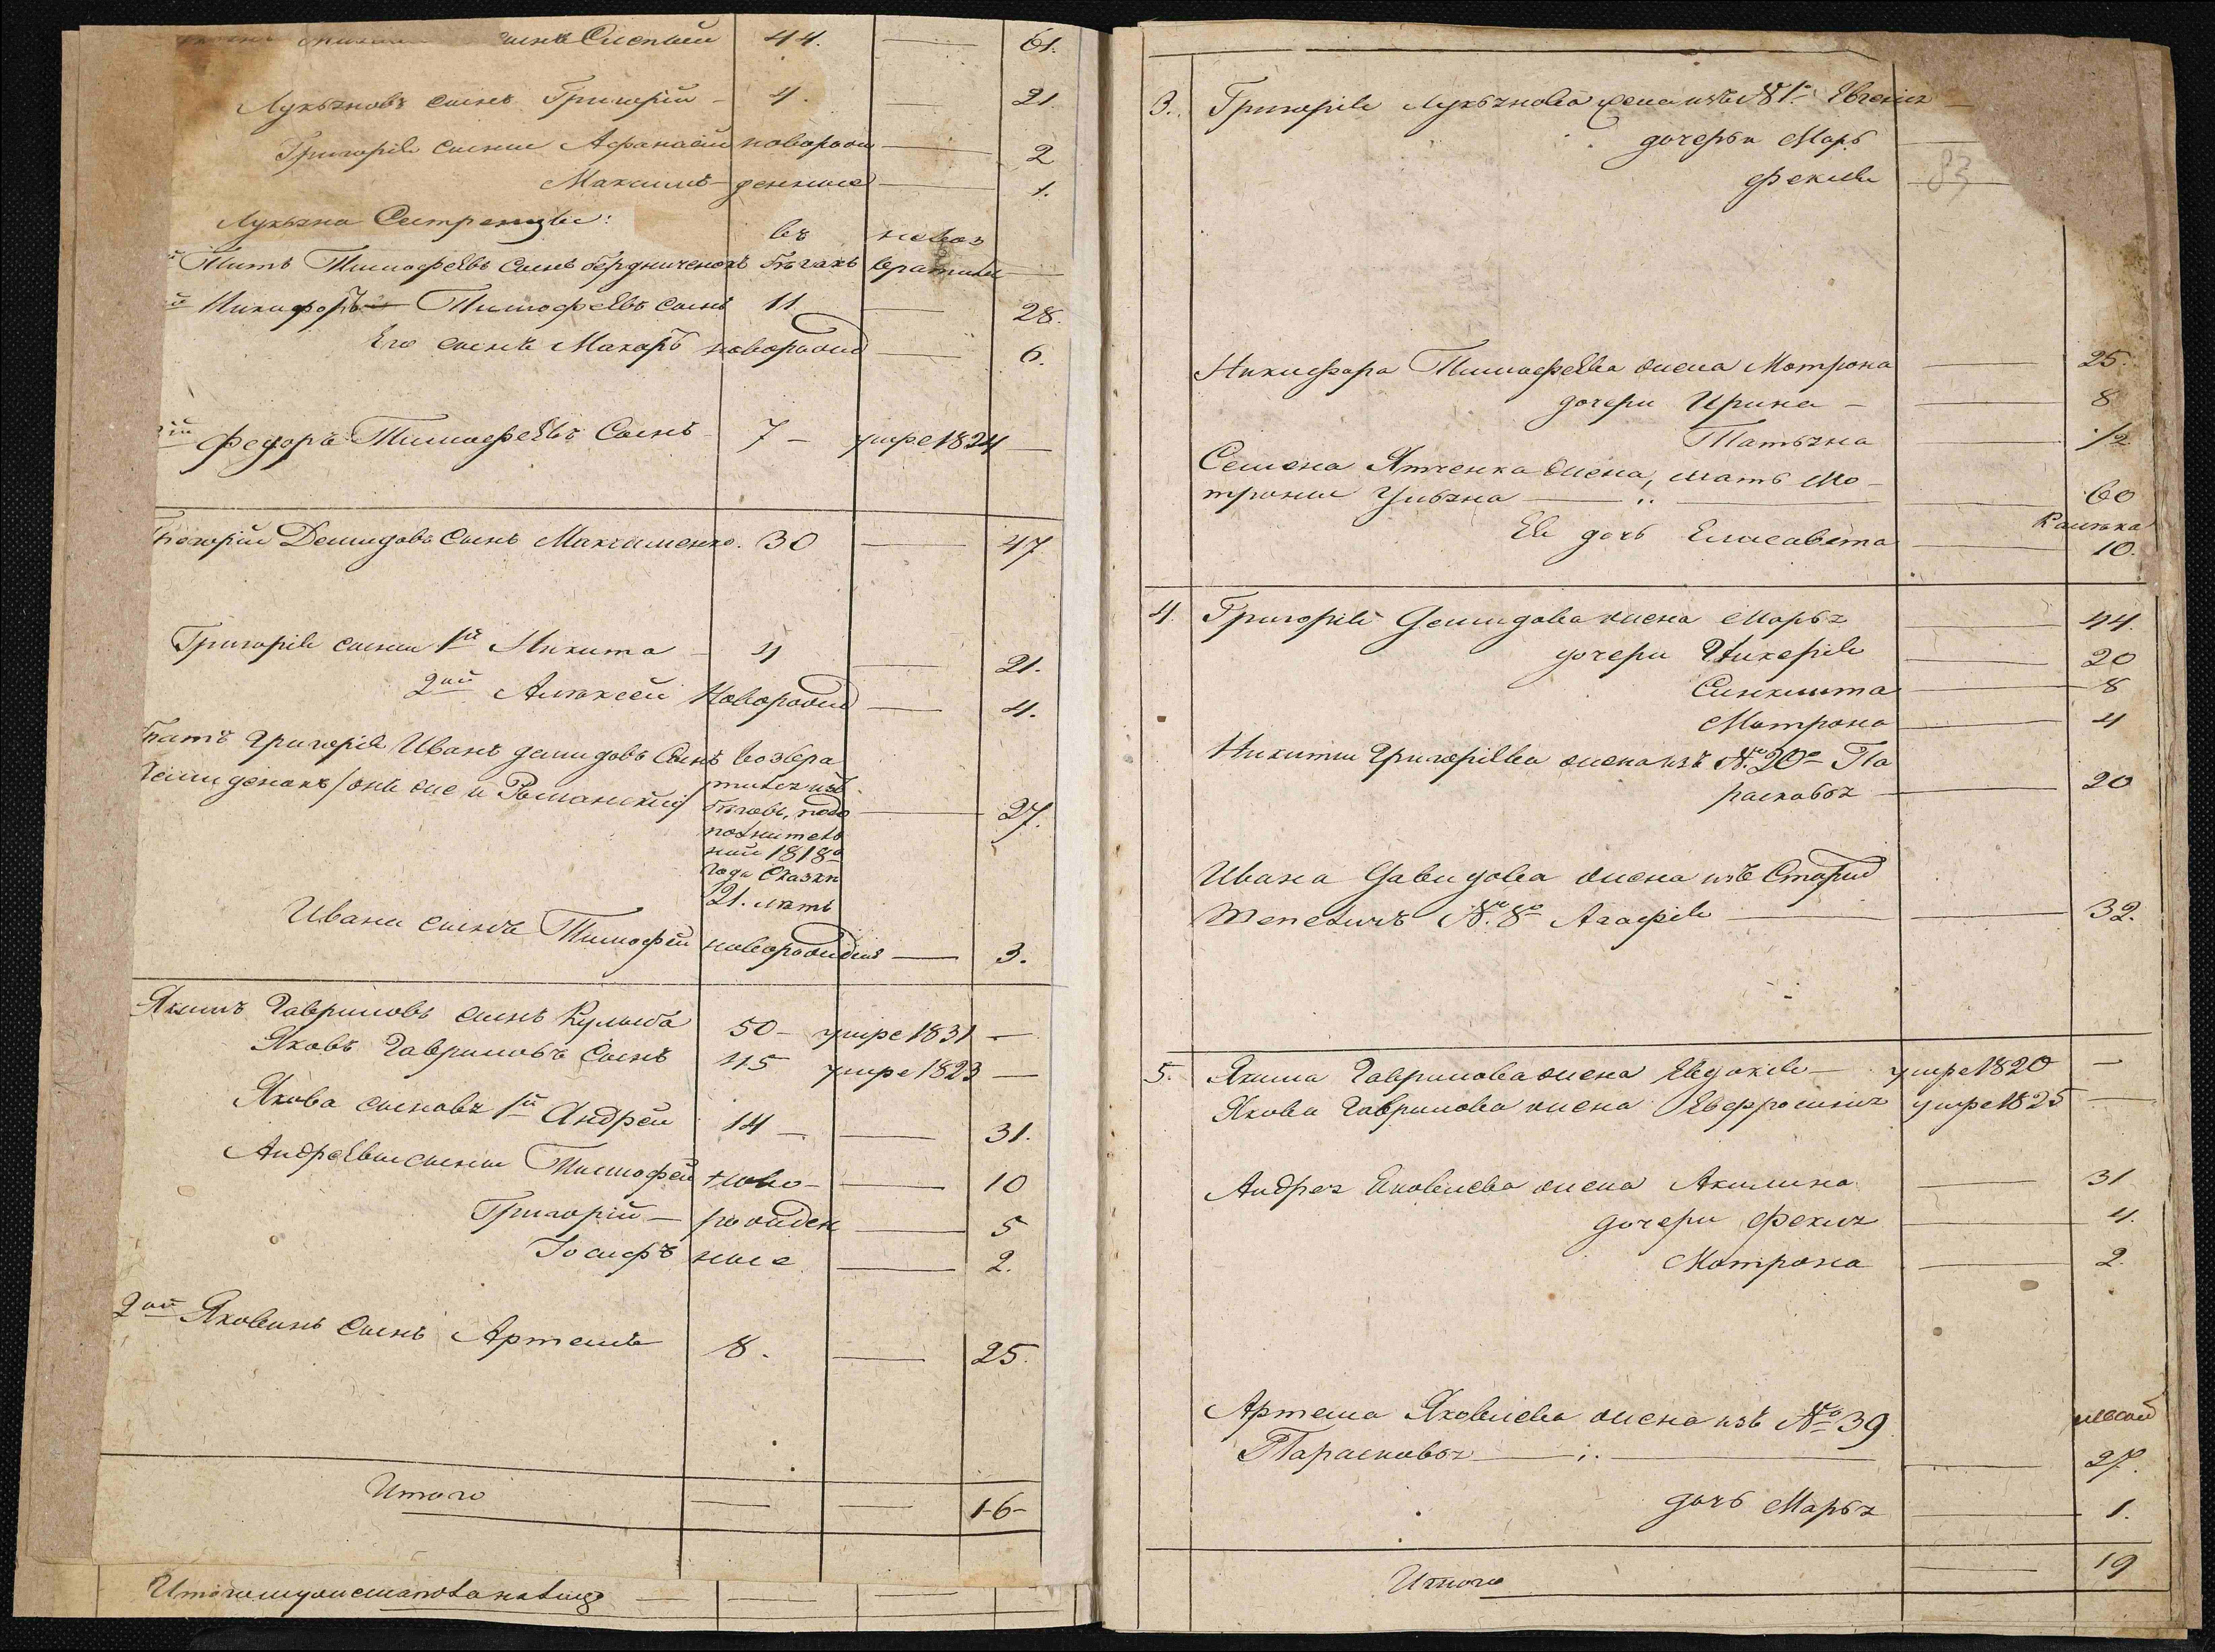 сынъ Слепый 44. — 61.
Лукьяновъ сынъ Григорій — 4. — 21.
Григорія сыны Афанасій новорож — 2
Максимъ — денные — 1.
Лукьяна
въ невоз
Титъ Тимофѣевъ сынъ бердниченокъ бѣгахъ вратился —
Никифоръ — Тимофѣевъ сынъ 11 — 28.
Его сынъ Макаръ новорожд — 6.
Федоръ Тимофѣевъ сынъ 7 — умре 1824 —
Григорій Демидовъ сынъ Максименко. 30 — 47
Григорія сыны 1й Никита — 4 — 21.
2ой Алѣксей новорожд — 4.
Братъ Григорія Иванъ демидовъ сынъ возвра
Демиденокъ /онъ же и Романскій/ тился изъ
бѣговъ, подо — 27.
полнитель
ной 1818го
года Сказки
21. лѣтъ
Ивана сынъ Тимофѣй новорожденъ — 3.
Якимъ Гавриловъ сынъ Кулыба 50 — умре 1831 —
Яковъ Гавриловъ сынъ 45 умре 1823 —
Якова сыновья 1й Андрей 14 — — 31.
Андрѣевы сыны Тимофѣй ново — — 10
Григорій — рожден — 5
Іосифъ ные — 2.
2ой Яковинъ сынъ Артемъ 8. — 25.
Итого — — 16 —
3. Григорія Лукьянова жена изъ № 1го Евгенія —
дочерьи Марь
Фекла — 83
Никифора Тимофѣева жена Мотрона — 25.
дочери Ирина — 8
Татьяна — 1/2
Семена Ятченка жена, мать Мо-
троны Ульяна — 60
Ея дочь Елисавета — 10.
4. Григорія Демидова жена Марья — 44.
дочери Гликерія — 20
Синклита — 8
Мотрона — 4
Никиты Григорьева жена изъ № 20го Па
расковья — 20
Ивана Давидова жена изъ Стария
Тепеличъ № 8го Агафія — 32.
5. Якима Гаврилова жена Евдокія — умре 1820 —
Якова Гаврилова жена Евфросинія умре 1825 —
Андрея Яковлева жена Акилина — 31
дочери Фекла — 4.
Мотрона — 2.
Артема Яковлева жена изъ № 39
Парасковья — 27.
дочь Марья — 1.
Итого — 19